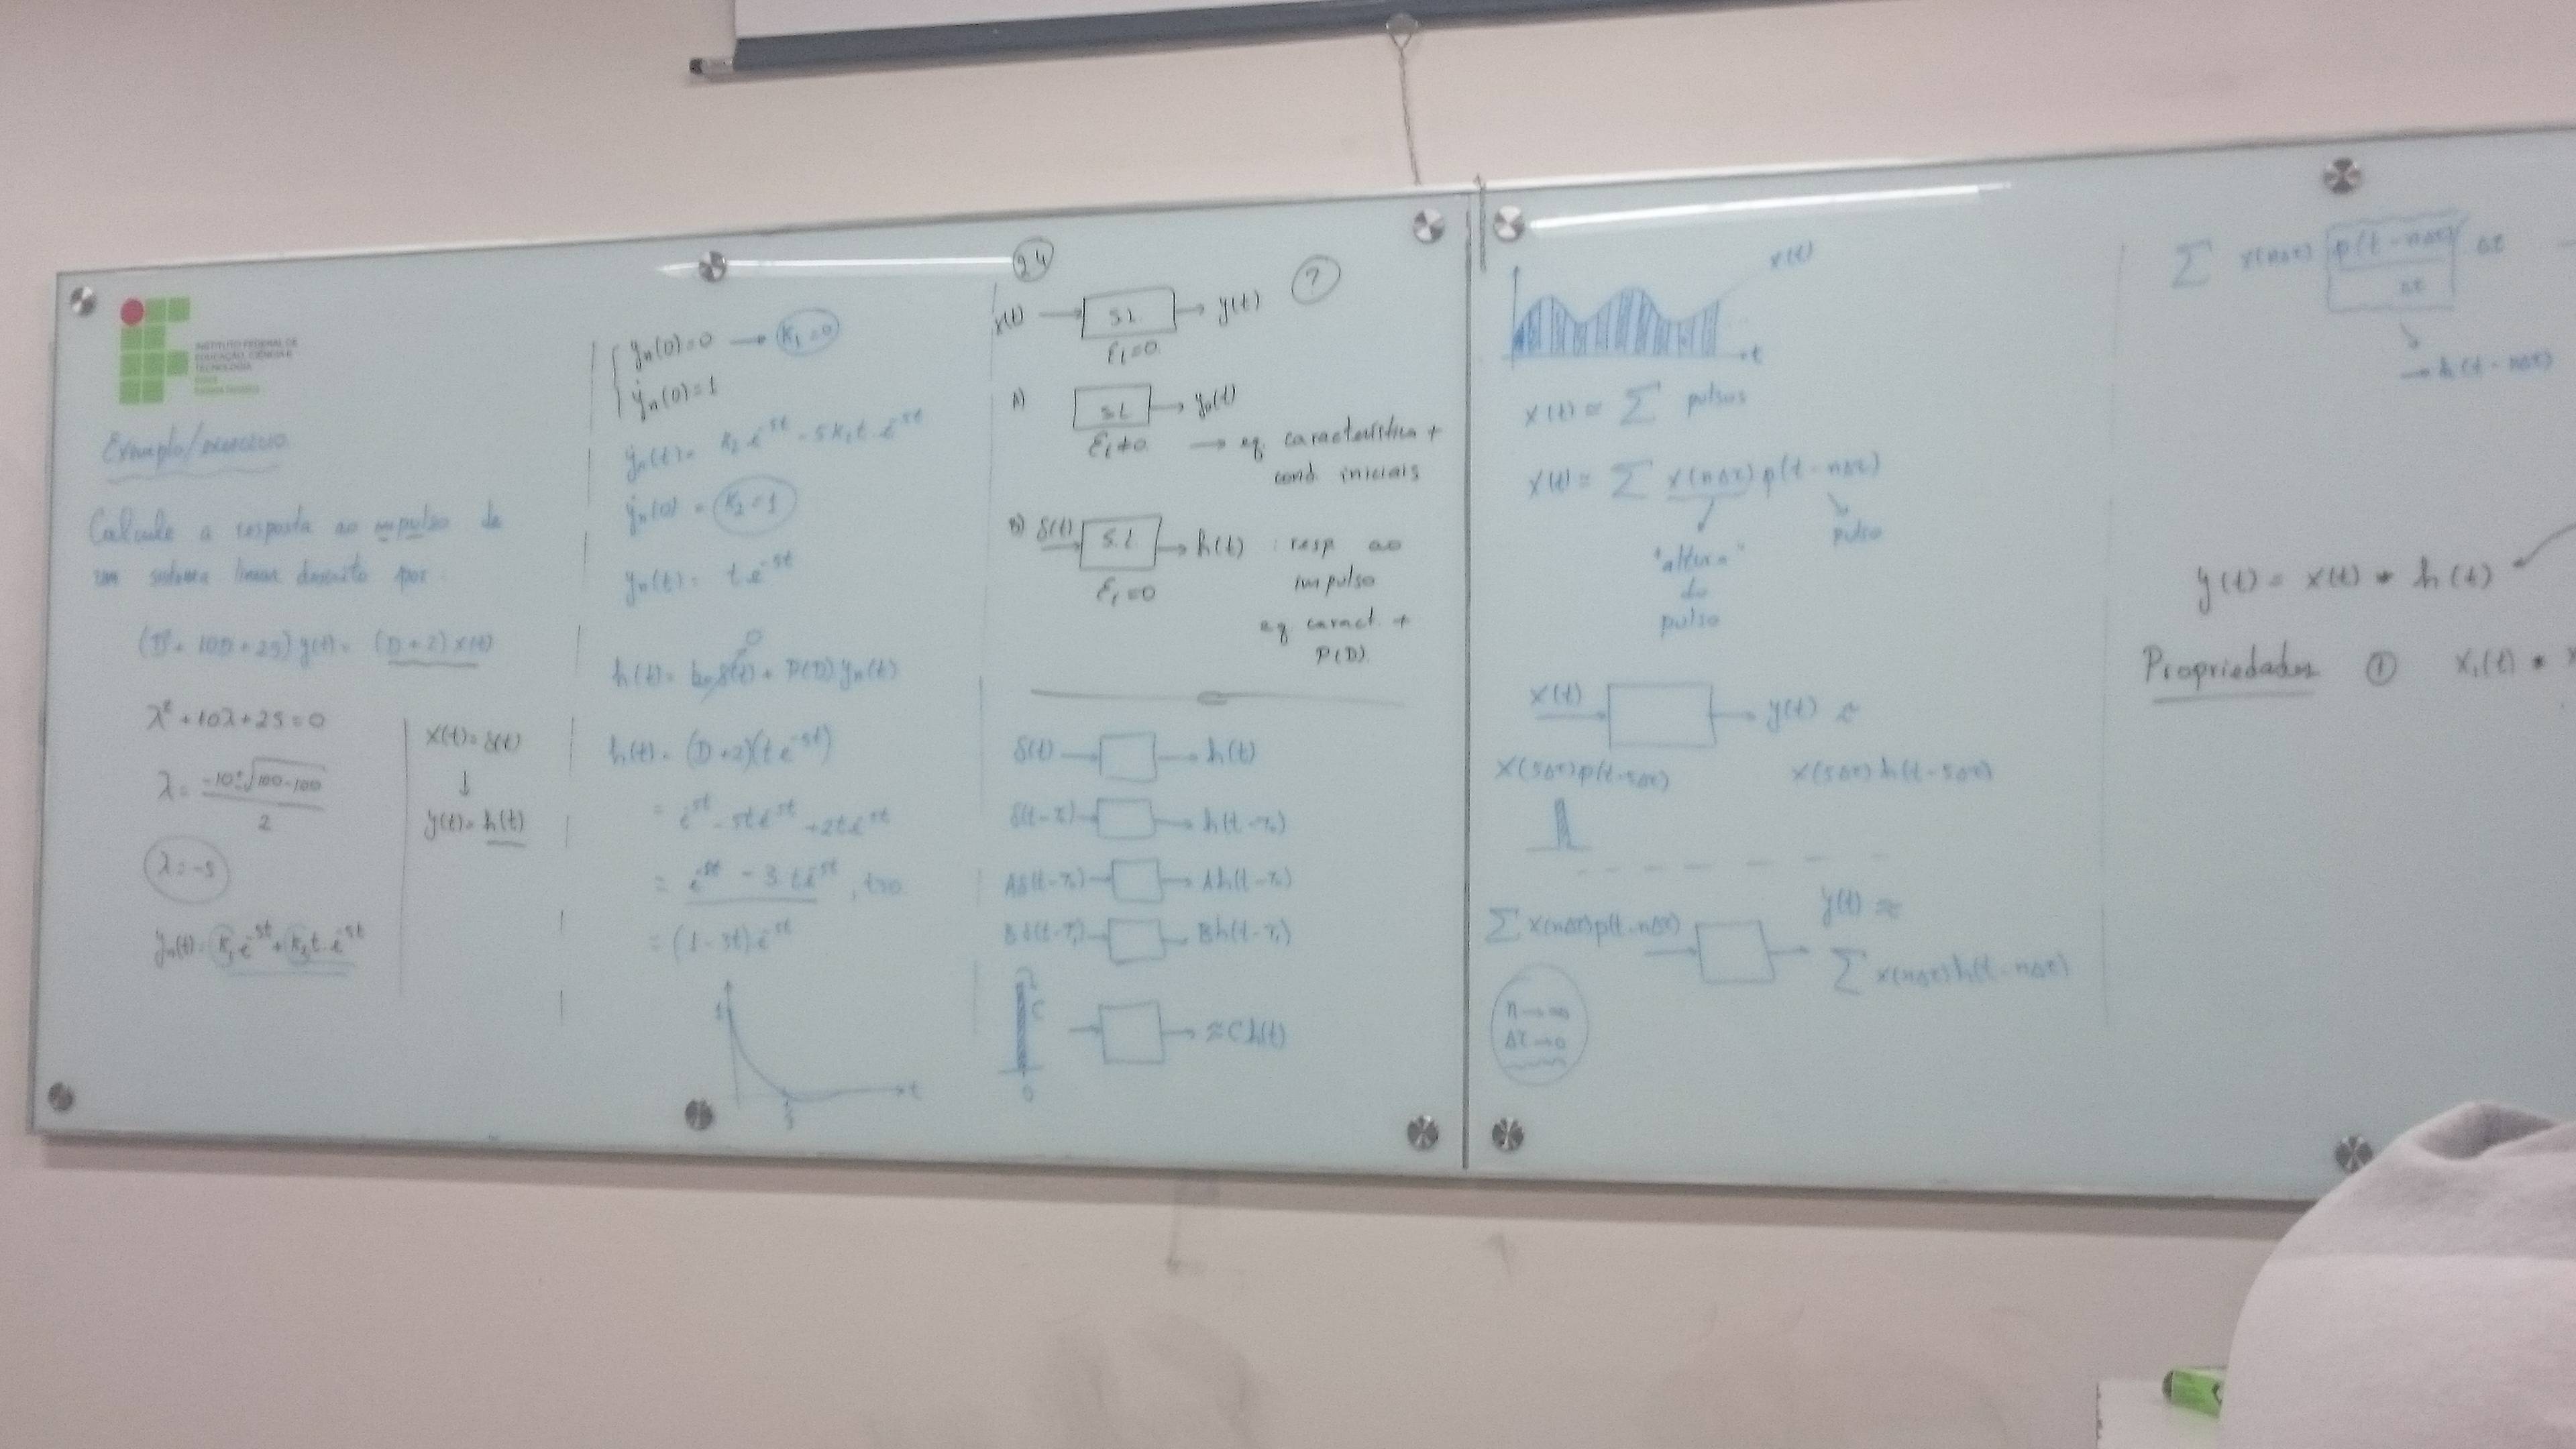 INSTITUTO FEDERAL DE
EDUCAÇÃO, CIÊNCIA E
TECNOLOGIA
Exemplo/exercício
Calcule a resposta ao impulso de
um sistema linear descrito por
(D²+10D+25)y(t) = (D+2)x(t)
λ²+10λ+25=0
λ = (-10±√(100-100))/2
λ=-5
yn(t) = K₁e^-5t + K₂t·e^-5t
x(t)=δ(t)
↓
y(t)=h(t)
yn(0)=0 → K₁=0
ẏn(0)=1
ẏn(t) = K₂ e^-5t - 5K₂t e^-5t
ẏn(0) = K₂=1
yn(t) = t e^-5t
h(t) = bₙδ(t) + P(D)yn(t)
0
h(t) = (D+2)(t e^-5t)
= e^-5t - 5te^-5t + 2te^-5t
= e^-5t - 3te^-5t, t≥0
= (1-3t)e^-5t
1
t
2.4
x(t) → S.L. → y(t) ?
Ei=0
A) S.L → y₀(t)
Ei≠0 → eq característica +
cond iniciais
B) δ(t) → S.L → h(t) : resp ao
Ei=0 impulso
eq caract. +
P(D)
δ(t) → h(t)
δ(t-τ) → h(t-τ₀)
Aδ(t-τ₀) → Ah(t-τ₀)
Bδ(t-τ₁) → Bh(t-τ₁)
C → ≈Ch(t)
0
x(t)
t
x(t) ≈ Σ pulsos
x(t) ≈ Σ x(nΔτ)p(t-nΔτ)
"altura" pulso
do
pulso
x(t) → y(t)
x(5Δτ)p(t-5Δτ) x(5Δτ)h(t-5Δτ)
Σx(nΔτ)p(t-nΔτ) → y(t) ≈
Σ x(nΔτ)h(t-nΔτ)
n→∞
Δτ→0
Σ x(nΔτ) p(t-nΔτ)/Δτ Δτ
→ h(t-nΔτ)
y(t) = x(t) * h(t)
Propriedades ① x₁(t) *